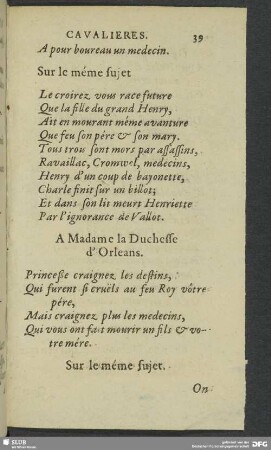 CAVALIERES. 39
A pour boureau un medecin.
Sur le méme sujet
Le croirez vous race future
Que la fille du grand Henry,
Ait en mourant méme avanture
Que feu son pére & son mary.
Tous trois sont mors par assassins,
Ravaillac, Cromwel, medecins,
Henry d'un coup de bayonette,
Charle finit sur un billot;
Et dans son lit meurt Henriette
Par l'ignorance de Vallot.
A Madame la Duchesse
d'Orleans.
Princesse craignez les destins,
Qui furent si cruëls au feu Roy vôtre
pére,
Mais craignez plus les medecins,
Qui vous ont fait mourir un fils & vo-
tre mére.
Sur le méme sujet.
On
SLUB
DFG